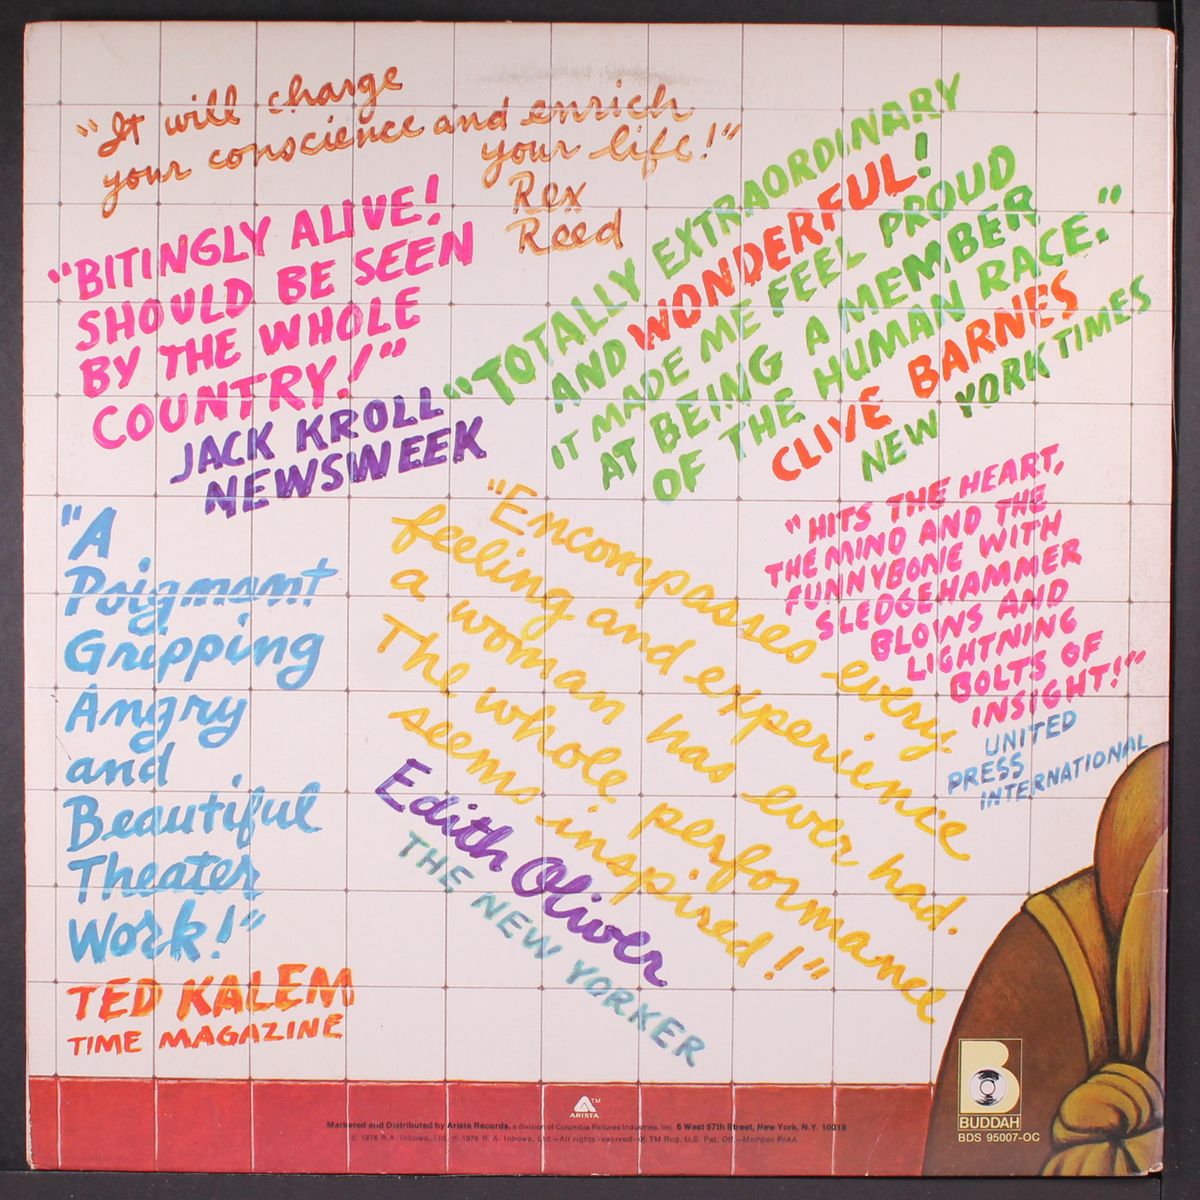 "It will charge
your conscience and enrich
your life!"
Rex
Reed
"BITINGLY ALIVE!
SHOULD BE SEEN
BY THE WHOLE
COUNTRY!"
JACK KROLL
NEWSWEEK
"TOTALLY EXTRAORDINARY
AND WONDERFUL!
IT MADE ME FEEL PROUD
AT BEING A MEMBER
OF THE HUMAN RACE."
CLIVE BARNES
NEW YORK TIMES
"A
Poignant
Gripping
Angry
and
Beautiful
Theater
Work!"
TED KALEM
TIME MAGAZINE
"Encompasses every
feeling and experience
a woman has ever had.
The whole performance
seems inspired!"
Edith Oliver
THE NEW YORKER
"HITS THE HEART,
THE MIND AND THE
FUNNYBONE WITH
SLEDGEHAMMER
BLOWS AND
LIGHTNING
BOLTS OF
INSIGHT!"
UNITED
PRESS
INTERNATIONAL
TM
ARISTA
Marketed and Distributed by Arista Records, a division of Columbia Pictures Industries, Inc. 6 West 57th Street, New York, N.Y. 10019
© 1976 R.A. Inbows, Ltd. ℗ 1976 R.A. Inbows, Ltd.—All rights reserved—® TM Reg. U.S. Pat. Off.—Member RIAA
B
BUDDAH
BDS 95007-OC